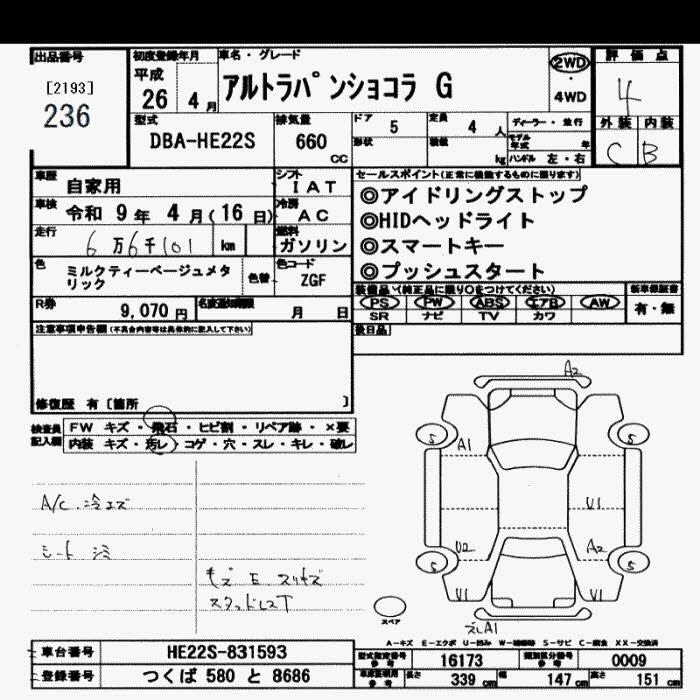 出品番号
[2193]
236
初度登録年月
平成
26 4月
車名・グレード
アルトラパンショコラ G
2WD
4WD
評価点
4
型式
DBA-HE22S
排気量
660
CC
ドア 5
定員 4 人
形状
積載 kg
ディーラー・並行
モデル年式 年
ハンドル 左・右
外装 内装
C B
車歴 自家用
シフト
IAT
車検 令和 9年 4月(16日)
冷房
AC
走行 6万6千101 km
燃料
ガソリン
色
ミルクティーベージュメタリック
色替
色コード
ZGF
セールスポイント(正常に機能するものに限ります)
◎アイドリングストップ
◎HIDヘッドライト
◎スマートキー
◎プッシュスタート
R券 9,070 円
名変通知期限 月 日
装備品(純正品に限り○をつけてください)
PS PW ABS エアB AW
SR ナビ TV カワ
新車保証書
有・無
注意事項申告欄(不具合内容等は具体的に記入して下さい)
後日品
修復歴 有〔箇所 〕
検査員記入欄
FW キズ・飛石・ヒビ割・リペア跡・×要
内装 キズ・汚レ・コゲ・穴・スレ・キレ・破レ
A/C 冷エズ
シート シミ
キズ E スリキズ
スタッドレスT
A2
S S
A1
U1
U2
A2
S S
U1 U1
ズレA1
スペア
A-キズ E-エクボ U-凹み W-補修跡 S-サビ C-腐食 XX-交換済
車台番号 HE22S-831593
登録番号 つくば 580 と 8686
型式指定番号
参考
16173
類別区分番号
参考
0009
車庫証明用
参考
長さ 339 cm 幅 147 cm 高さ 151 cm